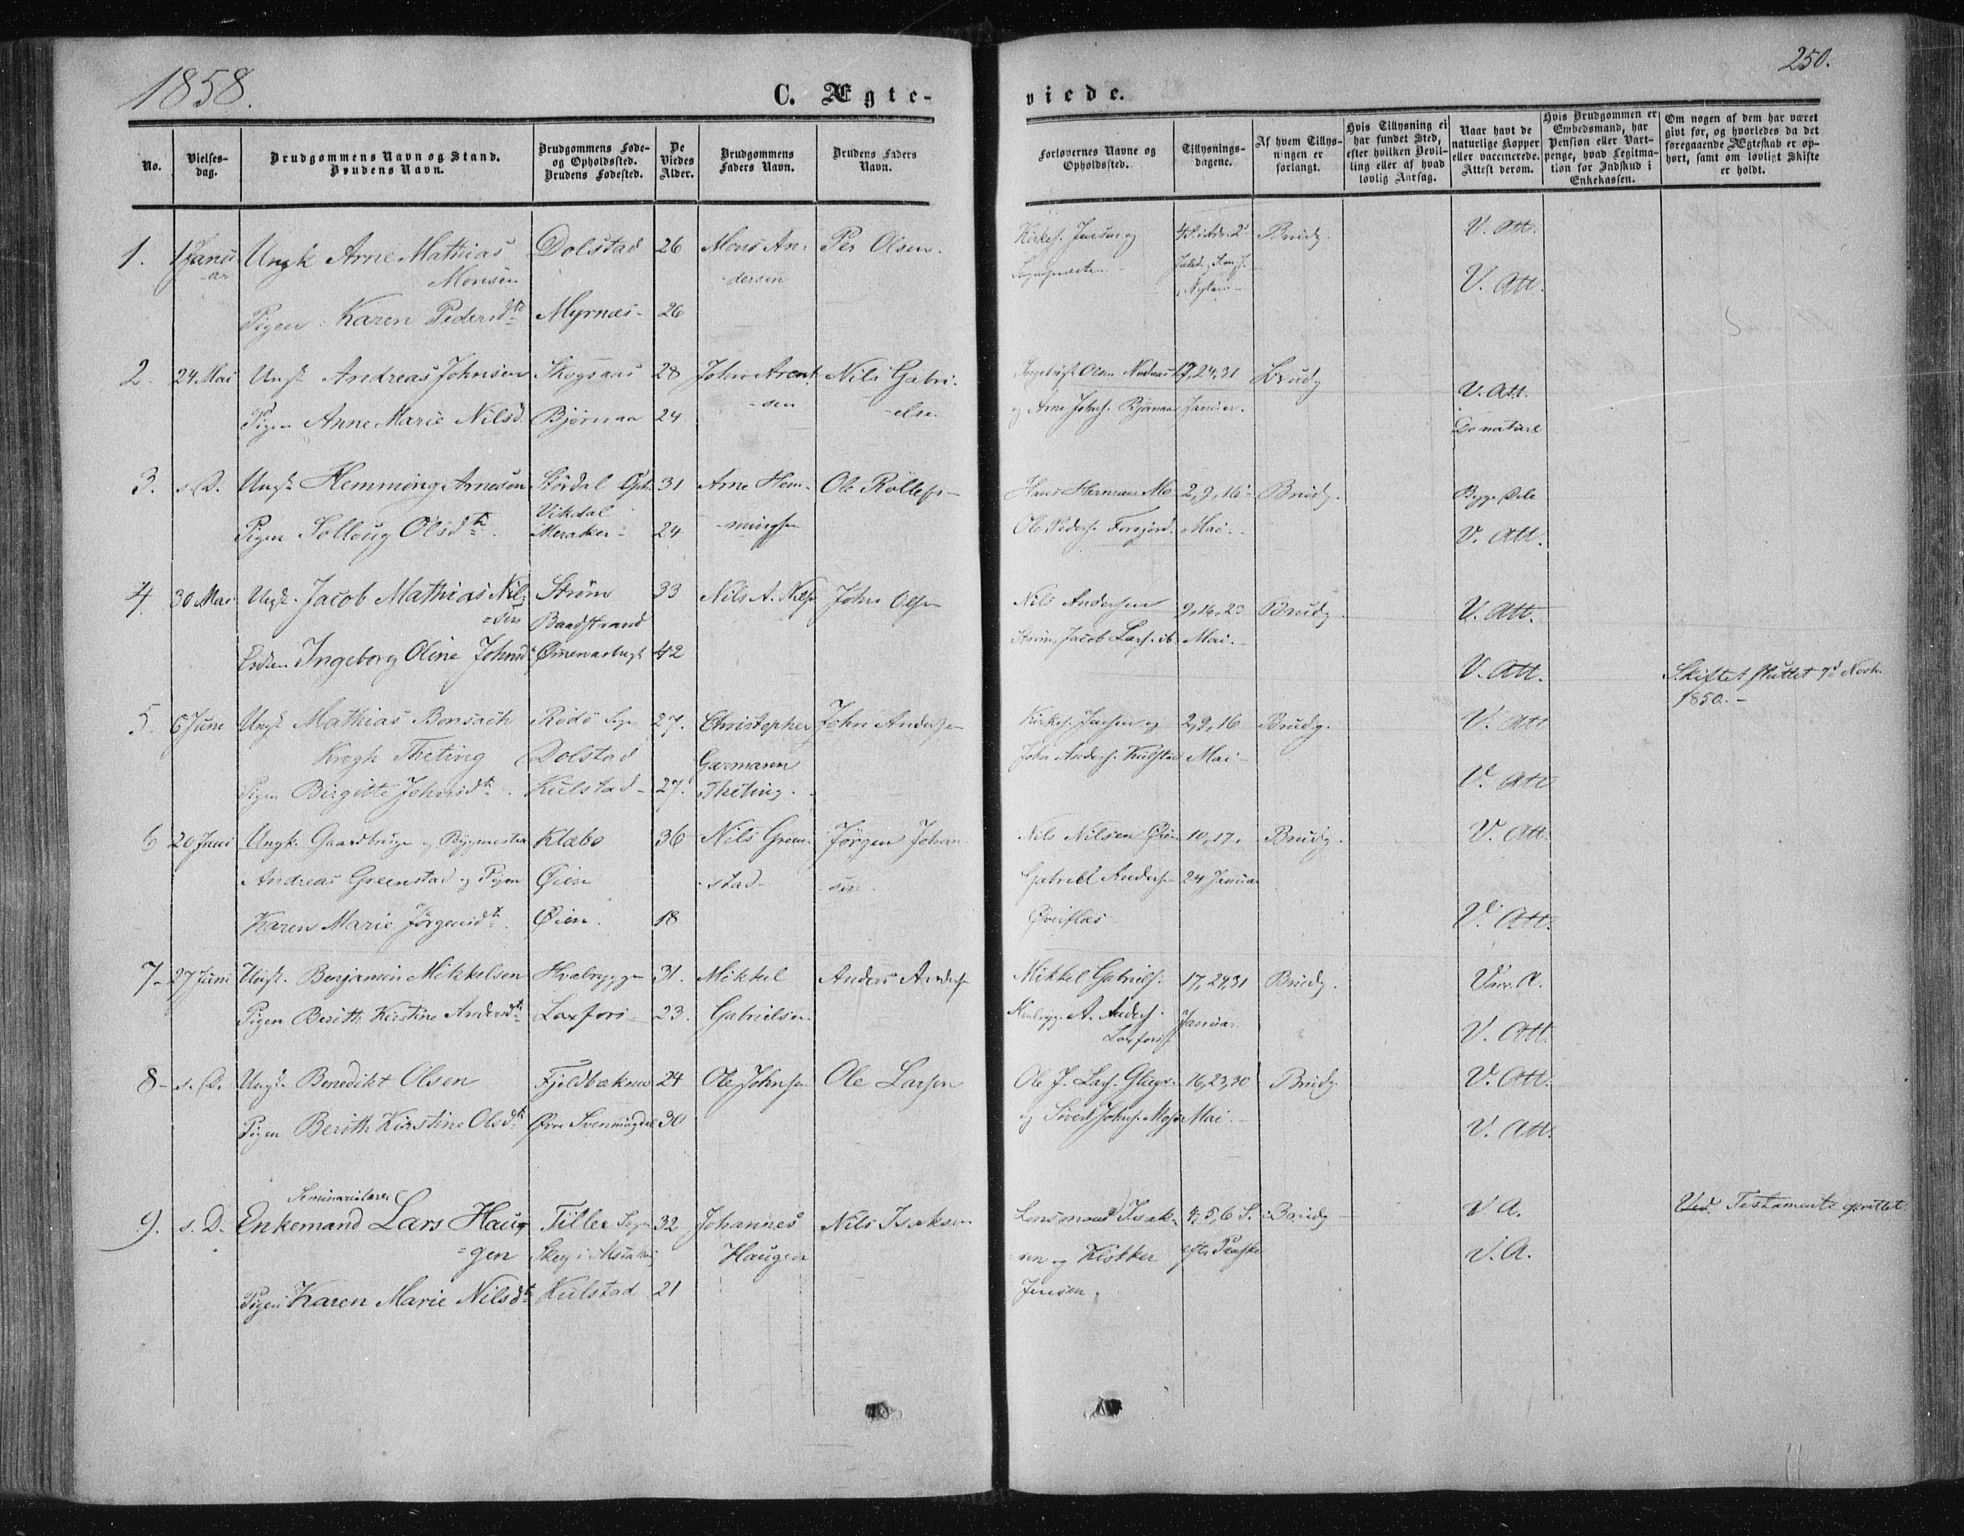 1858.
C. Ægte-
No.
Vielses-
dag.
Brudgommens Navn og Stand.
Brudens Navn.
Brudgommens Føde-
og Opholdssted.
Brudens Fødested.
De
Viedes
Alder.
Brudgommens
Faders Navn.
Brudens Faders
Navn.
1. 1 Janu Ungk Arne Mathias Dolstad 26 Mons An- Per Olsen.
ar Monsen dersen
Pigen Karen Pedersdtr Myrnæs 26
2. 24 Mai Ungk Andreas Johnsen Skogsaas 28 John Arent Nils Gabri-
Pigen Anne Marie Nilsd Bjørnaa 24 -sen -elsen
3. s. D. Ungk. Hemming Arnesen Stördal Oph. 31 Arne Hem- Ole Rollefs-
Vikdal
Pigen Solloug Olsdtr. Meraker 24 -mingsen
4 30 Mai Ungk. Jacob Mathias Nil- Strøm 33 Nils A. Nils John Olsen
=sen Baadstrand
Enken Ingeborg Oline Johnsd 42
5. 6 Juni Ungk Mathias Bonsach Rödö Sogn 27. Christopher John Andersen
Krogh Theting Dolstad Garmann
Pigen Birgitte Johnsdtr. Kulstad 27. Theting.
6 20 Juni Ungk. Gaardbruger og Bygmester Klæbo 36 Nils Green- Jørgen Johan-
Andreas Greenstad og Pigen Øien -stad- sen.
Karen Marie Jørgensdtr. Øien. 18
7- 27 Juni Ungk. Benjamin Mikkelsen 31. Mikkel Anders Anders
Pigen Berith Kirstine Andersdtr Laxfors 23. Gabrielsen
8- s. D. Ungk. Benedikt Olsen Fjeldbækmo 24 Ole Johnsen Ole Larsen
Pigen Berith Kirstine Olsdtr Øvre Svenningdal 30
Seminarielærer
9. s. D. Enkemand Lars Hau- Tiller Sogn 32 Johannes Nils Isaksen
=gen Skog i Haugen
Pigen Karen Marie Nilsdtr Kulstad 21
250.
viede.
Forlovernes Navne og
Opholdssted.
Tillysnings-
dagene.
Af hvem Tillys-
ningen er
forlangt.
Hvis Tillysning ei
har fundet Sted,
efter hvilken Bevil-
ling eller af hvad
lovlig Aarsag.
Naar havt de
naturlige Kopper
eller vaccinerede.
Attest derom.
Hvis Brudgommen er
Embedsmand, har
Pension eller Vart-
penge, hvad Legitma-
tion for Indskud i
Enkekassen.
Om nogen af dem har været
givt før, og hvorledes da det
foregaaende Ægteskab er op-
hørt, samt om lovligt Skifte
er holdt.
Kirkes. Jensen og Brudg. V. Att.
V. Att.
Ingebrigt Olsen 17, 24, 31 Brudg
og Arne Johns. Bjørnaa Januar. V. Att.
Do naturl
Hans Herman Mo 2, 9, 16 Brudg.
Ole Peders. Forsjord. Mai. V. Att.
Nils Andersen 9, 16, 23 Brudg. V. Att.
Strøm, Jacob Lars. ib. Mai.
V. Att. Skiftet sluttet 7d Novb.
1850.-
Kirkes. Jensen og 2, 9, 16 Brudg. V. Att
John Anders. Kulstad Mai V. Att
Nils Nilsen Øien 10, 17, Brudg. V. Att.
Gabriel Anders 24 Januar
V. Att.
Mikkel Gabriels. 17, 24, 31 Brudg. Vacc. A.
A. Anders. Januar
Laxfors V. Att.
Ole J. Lars. 16, 23, 30 Brudg. V. Att.
og Sivert Johns. Mai V. Att.
Lensmand Isak- 4, 5, 6 S. Brudg V A. Testamente oprettet
sen og Kirker efter Paaske V. A.
Jensen.